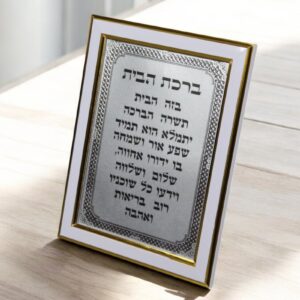 ברכת הבית
בזה הבית
תשרה הברכה
יתמלא הוא תמיד
שפע אור ושמחה
בו ידורו אחווה,
שלום ושלווה
וידעו כל שוכניו
רוב בריאות
ואהבה